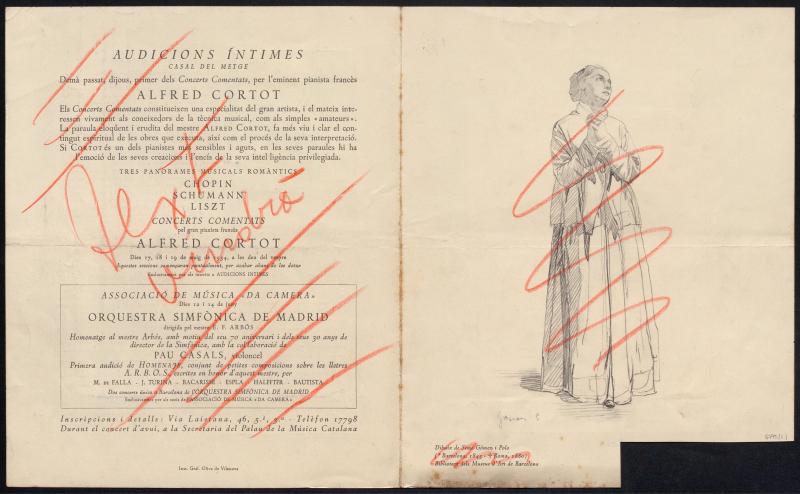 AUDICIONS ÍNTIMES
CASAL DEL METGE
Demà passat, dijous, primer dels Concerts Comentats, per l'eminent pianista francès
ALFRED CORTOT
Els Concerts Comentats constitueixen una especialitat del gran artista, i el mateix inte-
ressen vivament als coneixedors de la tècnica musical, com als simples «amateurs».
La paraula eloqüent i erudita del mestre ALFRED CORTOT, fa més viu i clar el con-
tingut espiritual de les obres que executa, així com el procés de la seva interpretació.
Si CORTOT és un dels pianistes més sensibles i aguts, en les seves paraules hi ha
l'emoció de les seves creacions i l'encís de la seva intel·ligència privilegiada.
TRES PANORAMES MUSICALS ROMÀNTICS
CHOPIN
SCHUMANN
LISZT
CONCERTS COMENTATS
pel gran pianista francès
ALFRED CORTOT
Dies 17, 18 i 19 de maig de 1934, a les deu del vespre
Aquestes sessions començaran puntualment, per acabar abans de les dotze
Exclusivament per als socis d'AUDICIONS ÍNTIMES
ASSOCIACIÓ DE MÚSICA «DA CAMERA»
Dies 12 i 14 de juny
ORQUESTRA SIMFÒNICA DE MADRID
dirigida pel mestre E. F. ARBÓS
Homenatge al mestre Arbós, amb motiu del seu 70 aniversari i dels seus 30 anys de
director de la Simfònica, amb la col·laboració de
PAU CASALS, violoncel
Primera audició de HOMENAJE, conjunt de petites composicions sobre les lletres
A.R.B.O.S. escrites en honor d'aquest mestre, per
M. DE FALLA - J. TURINA - BACARISSE - ESPLA - HALFFTER - BAUTISTA
Dos concerts únics a Barcelona de l'ORQUESTRA SIMFÒNICA DE MADRID
Exclusivament per als socis de l'ASSOCIACIÓ DE MÚSICA «DA CAMERA»
Inscripcions i detalls: Via Laietana, 46, 5.è, 2.ª - Telèfon 17798
Durant el concert d'avui, a la Secretaria del Palau de la Música Catalana
Imp. Gràf. Oliva de Vilanova
Dibuix de Simó Gómez i Polo
(* Barcelona, 1845 - † Roma, 1880)
Biblioteca dels Museus d'Art de Barcelona